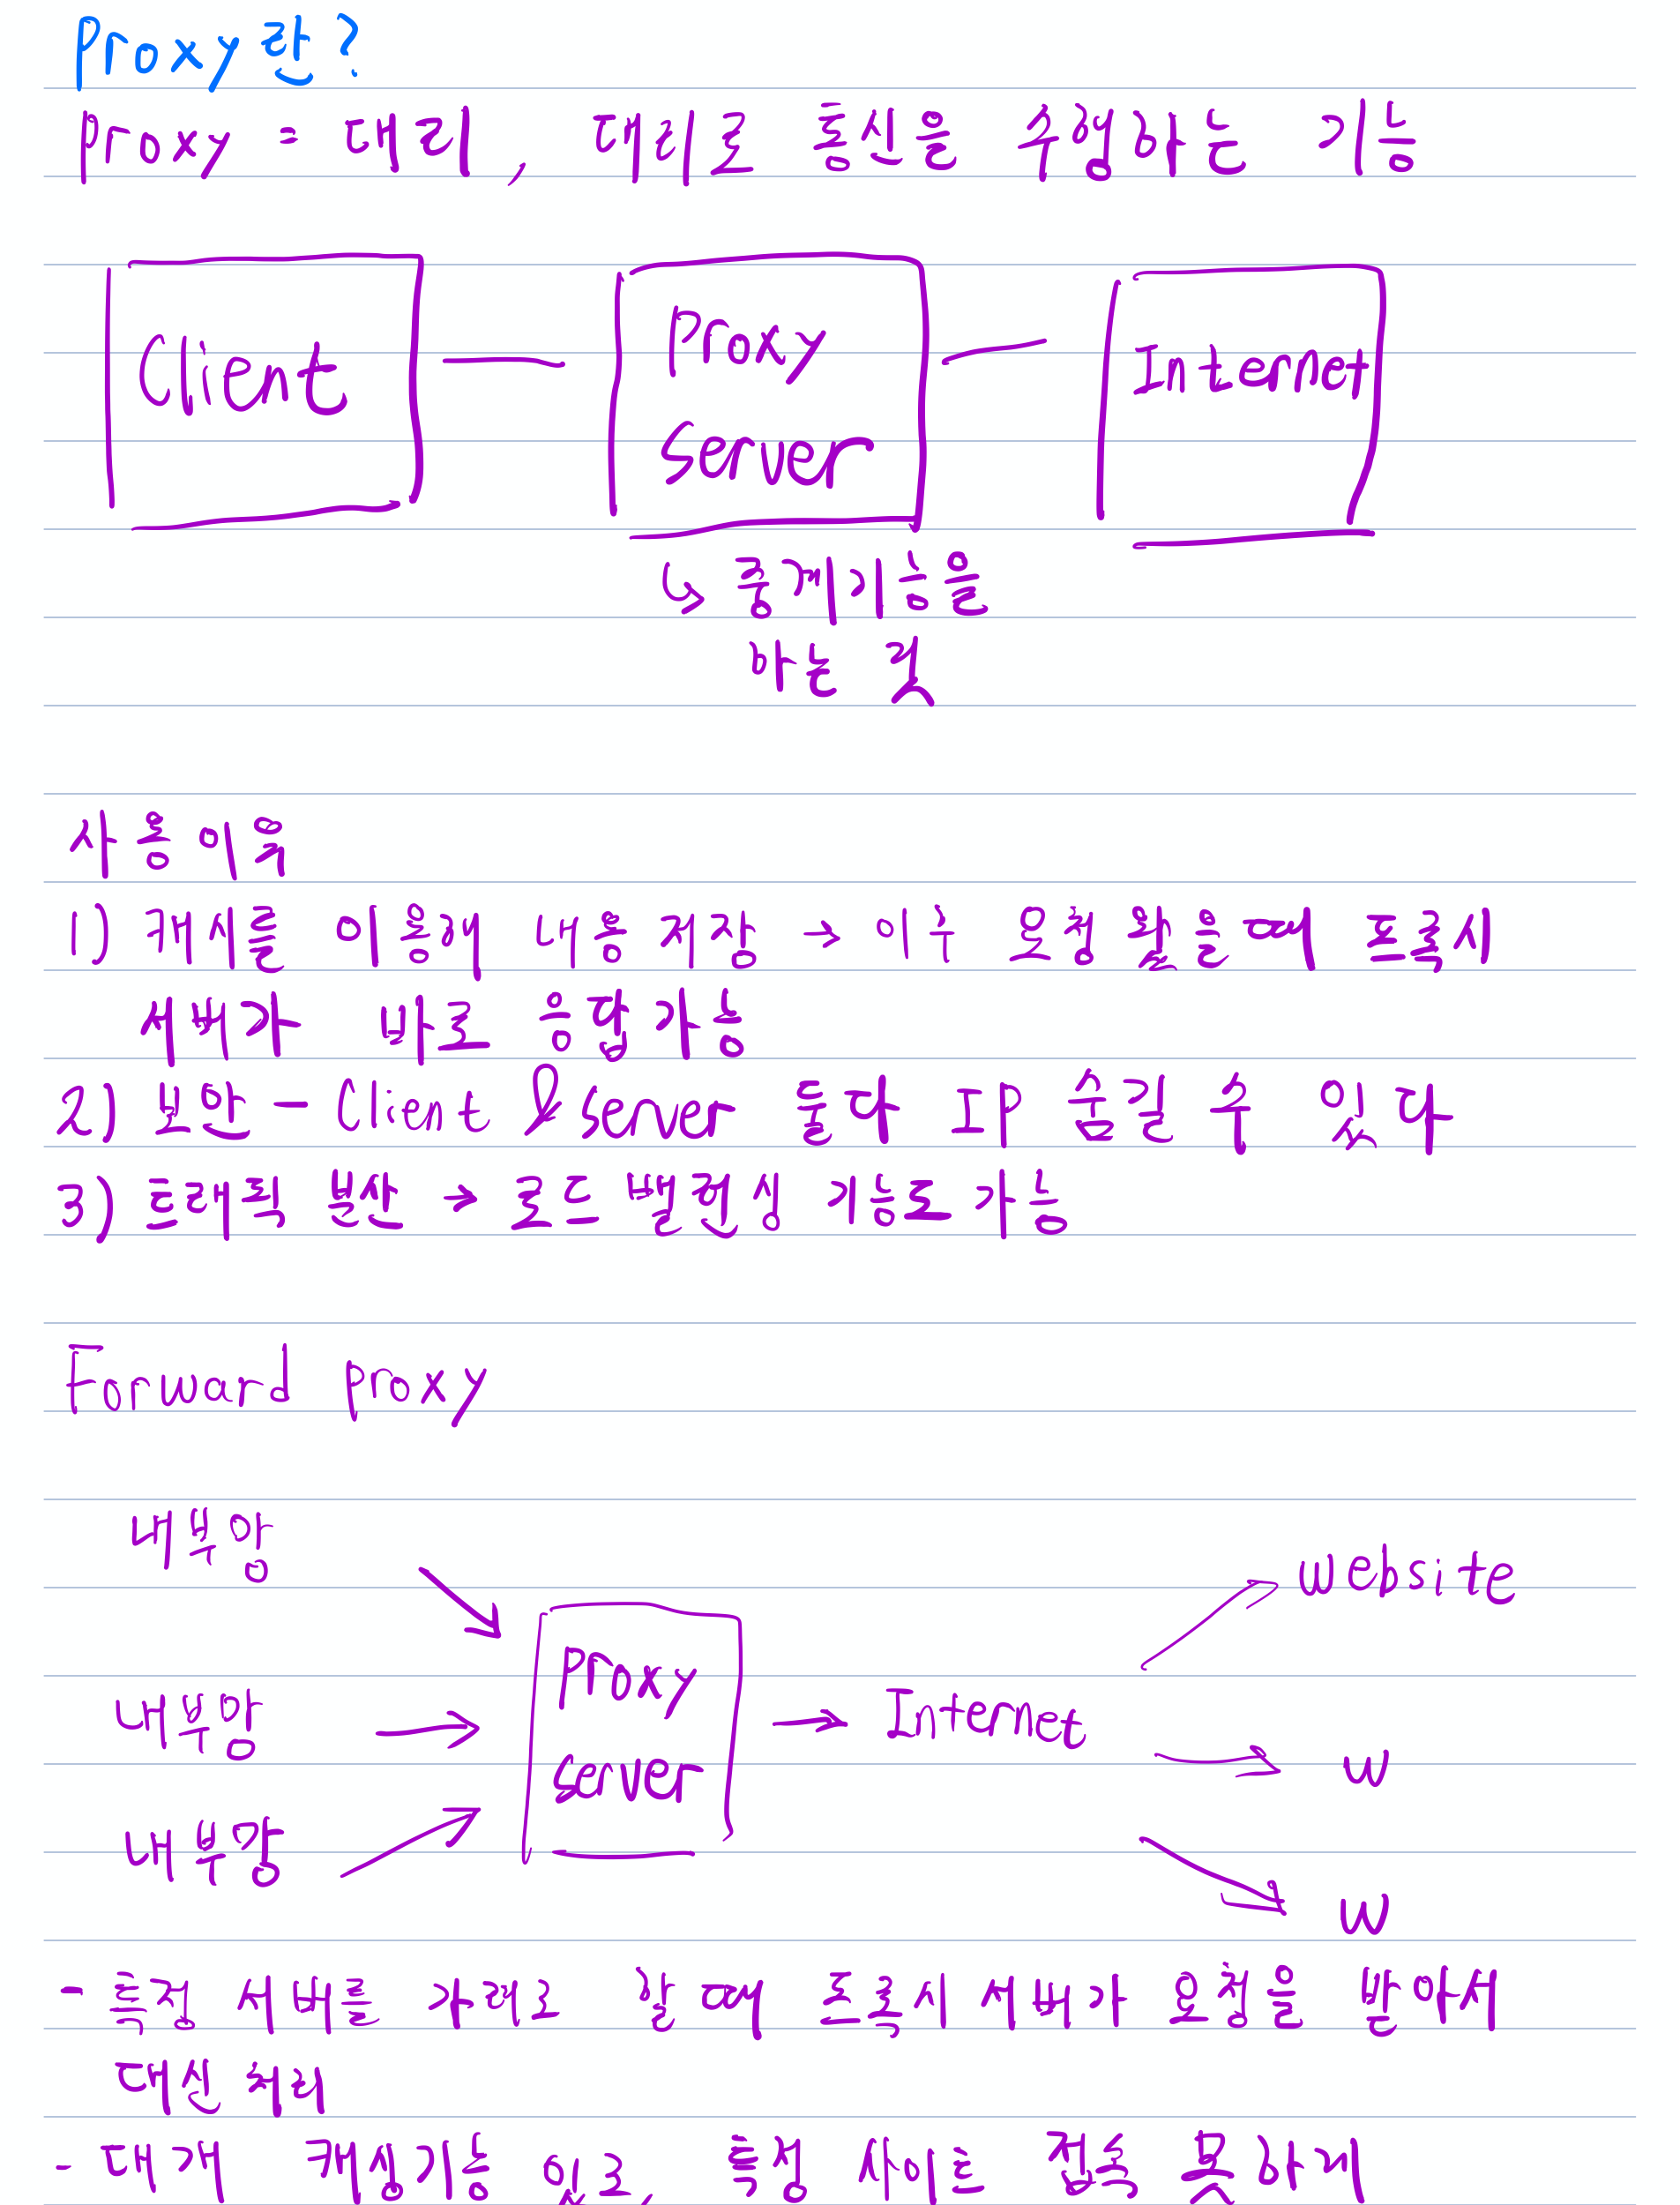 Proxy란?
Proxy = 대리, 대리로 통신을 수행하는 기능
Client
Proxy
Server
Internet
↳ 중계기능을
하는 것
사용이유
1) 캐시를 이용해 내용 저장 → 이후 요청 왔을때 프록시
서버가 바로 응답가능
2) 보안 - Client & Server 둘다 IP 숨길 수 있다
3) 트래픽 분산 → 로드 밸런싱 기능도 가능
Forward Proxy
내부망
내부망
내부망
Proxy
server
Internet
website
w
w
- 특정 서버를 가려고 할 때 프록시 서버가 요청을 받아서
대신 처리
- 대개 캐싱기능 있고, 특정 사이트 접속 못하게